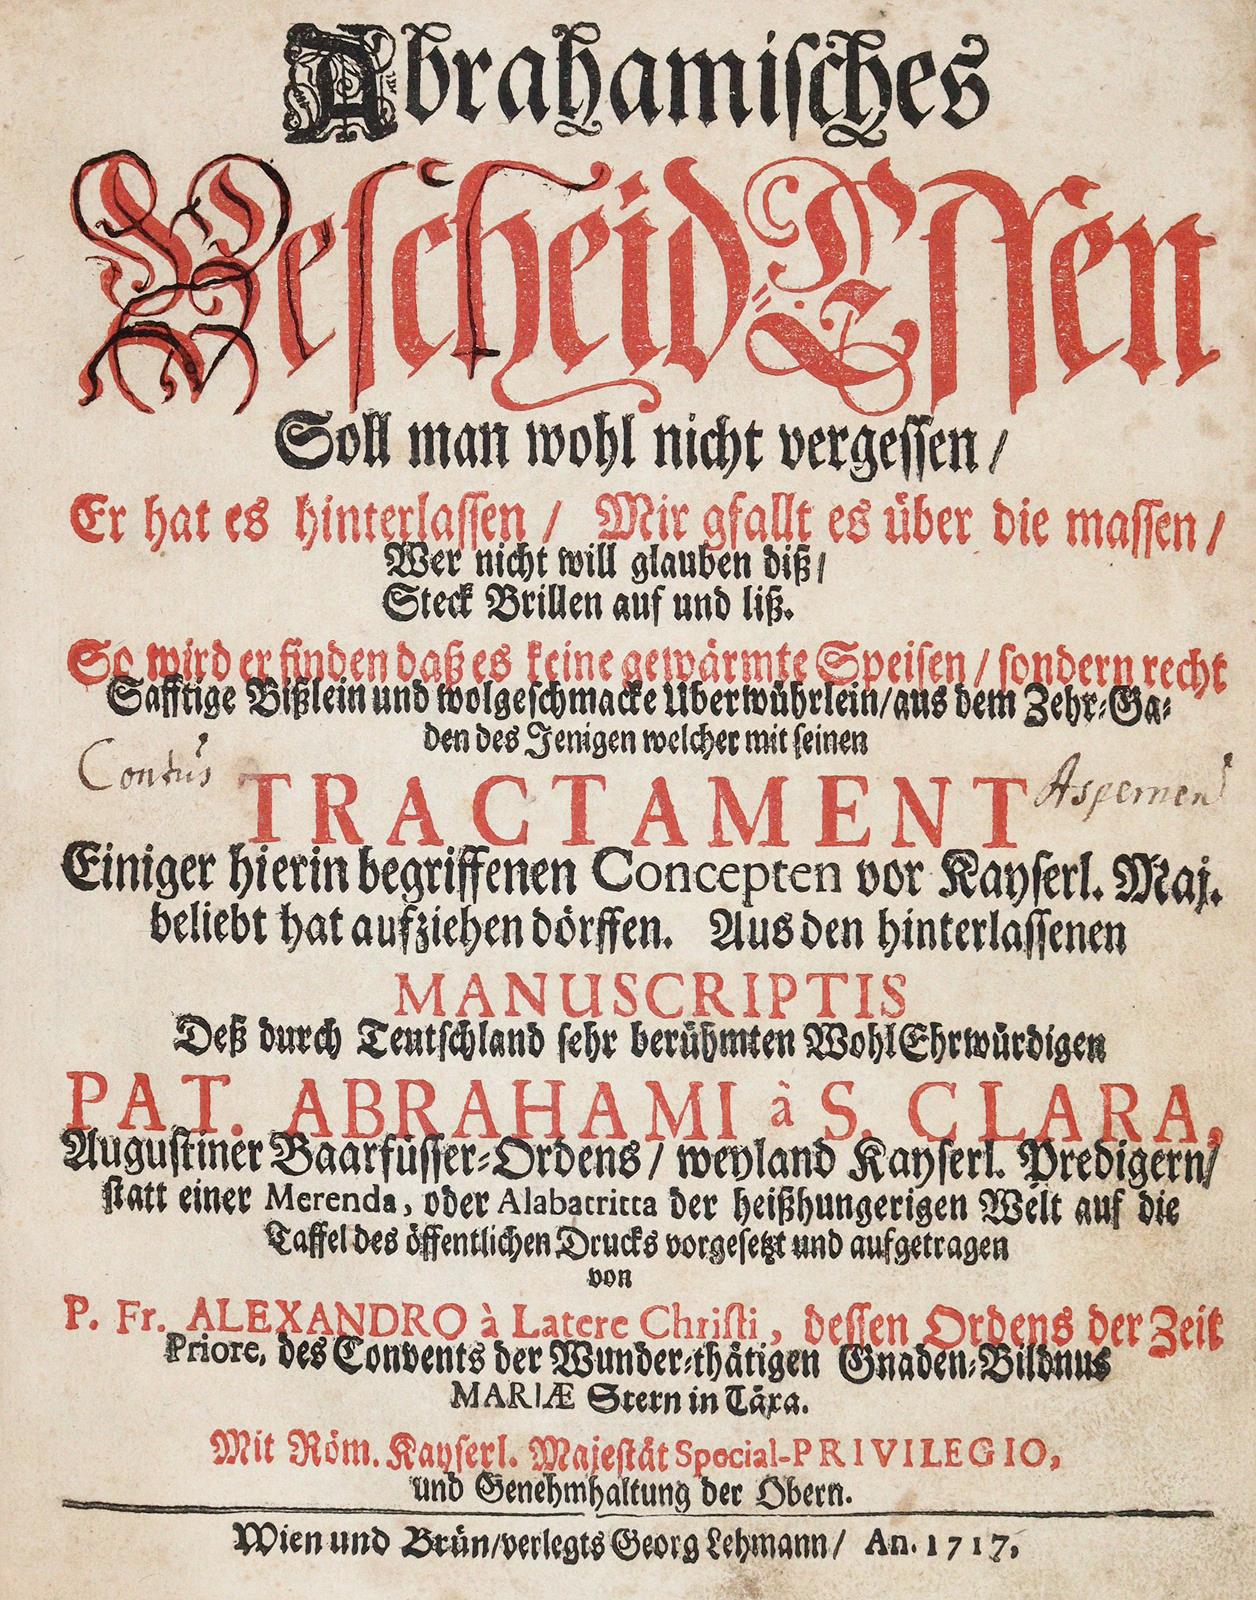 Abrahamisches
Bescheid Essen
Soll man wohl nicht vergessen /
Er hat es hinterlassen / Mir gfallt es über die massen /
Wer nicht will glauben diß /
Steck Brillen auf und liß.
So wird er finden daß es keine gewärmte Speisen / sondern recht
Safftige Bißlein und wolgeschmacke Uberwührlein / aus dem Zehr-Ga-
den des Jenigen welcher mit seinen
Contus TRACTAMENT
Einiger hierin begriffenen Concepten vor Kayserl. Maj.
beliebt hat aufziehen dörffen. Aus den hinterlassenen
MANUSCRIPTIS
Deß durch Teutschland sehr berühmten WohlEhrwürdigen
PAT. ABRAHAMI à S. CLARA,
Augustiner Baarfüsser-Ordens / weyland Kayserl. Predigern /
statt einer Merenda, oder Alabatritta der heißhungerigen Welt auf die
Taffel des öffentlichen Drucks vorgesetzt und aufgetragen
von
P. Fr. ALEXANDRO à Latere Christi, dessen Ordens der Zeit
Priore, des Convents der Wunder-thätigen Gnaden-Bildnus
MARIÆ Stern in Täxa.
Mit Röm. Kayserl. Majestät Special-PRIVILEGIO,
und Genehmhaltung der Obern.
Wien und Brün / verlegts Georg Lehmann / An. 1717,